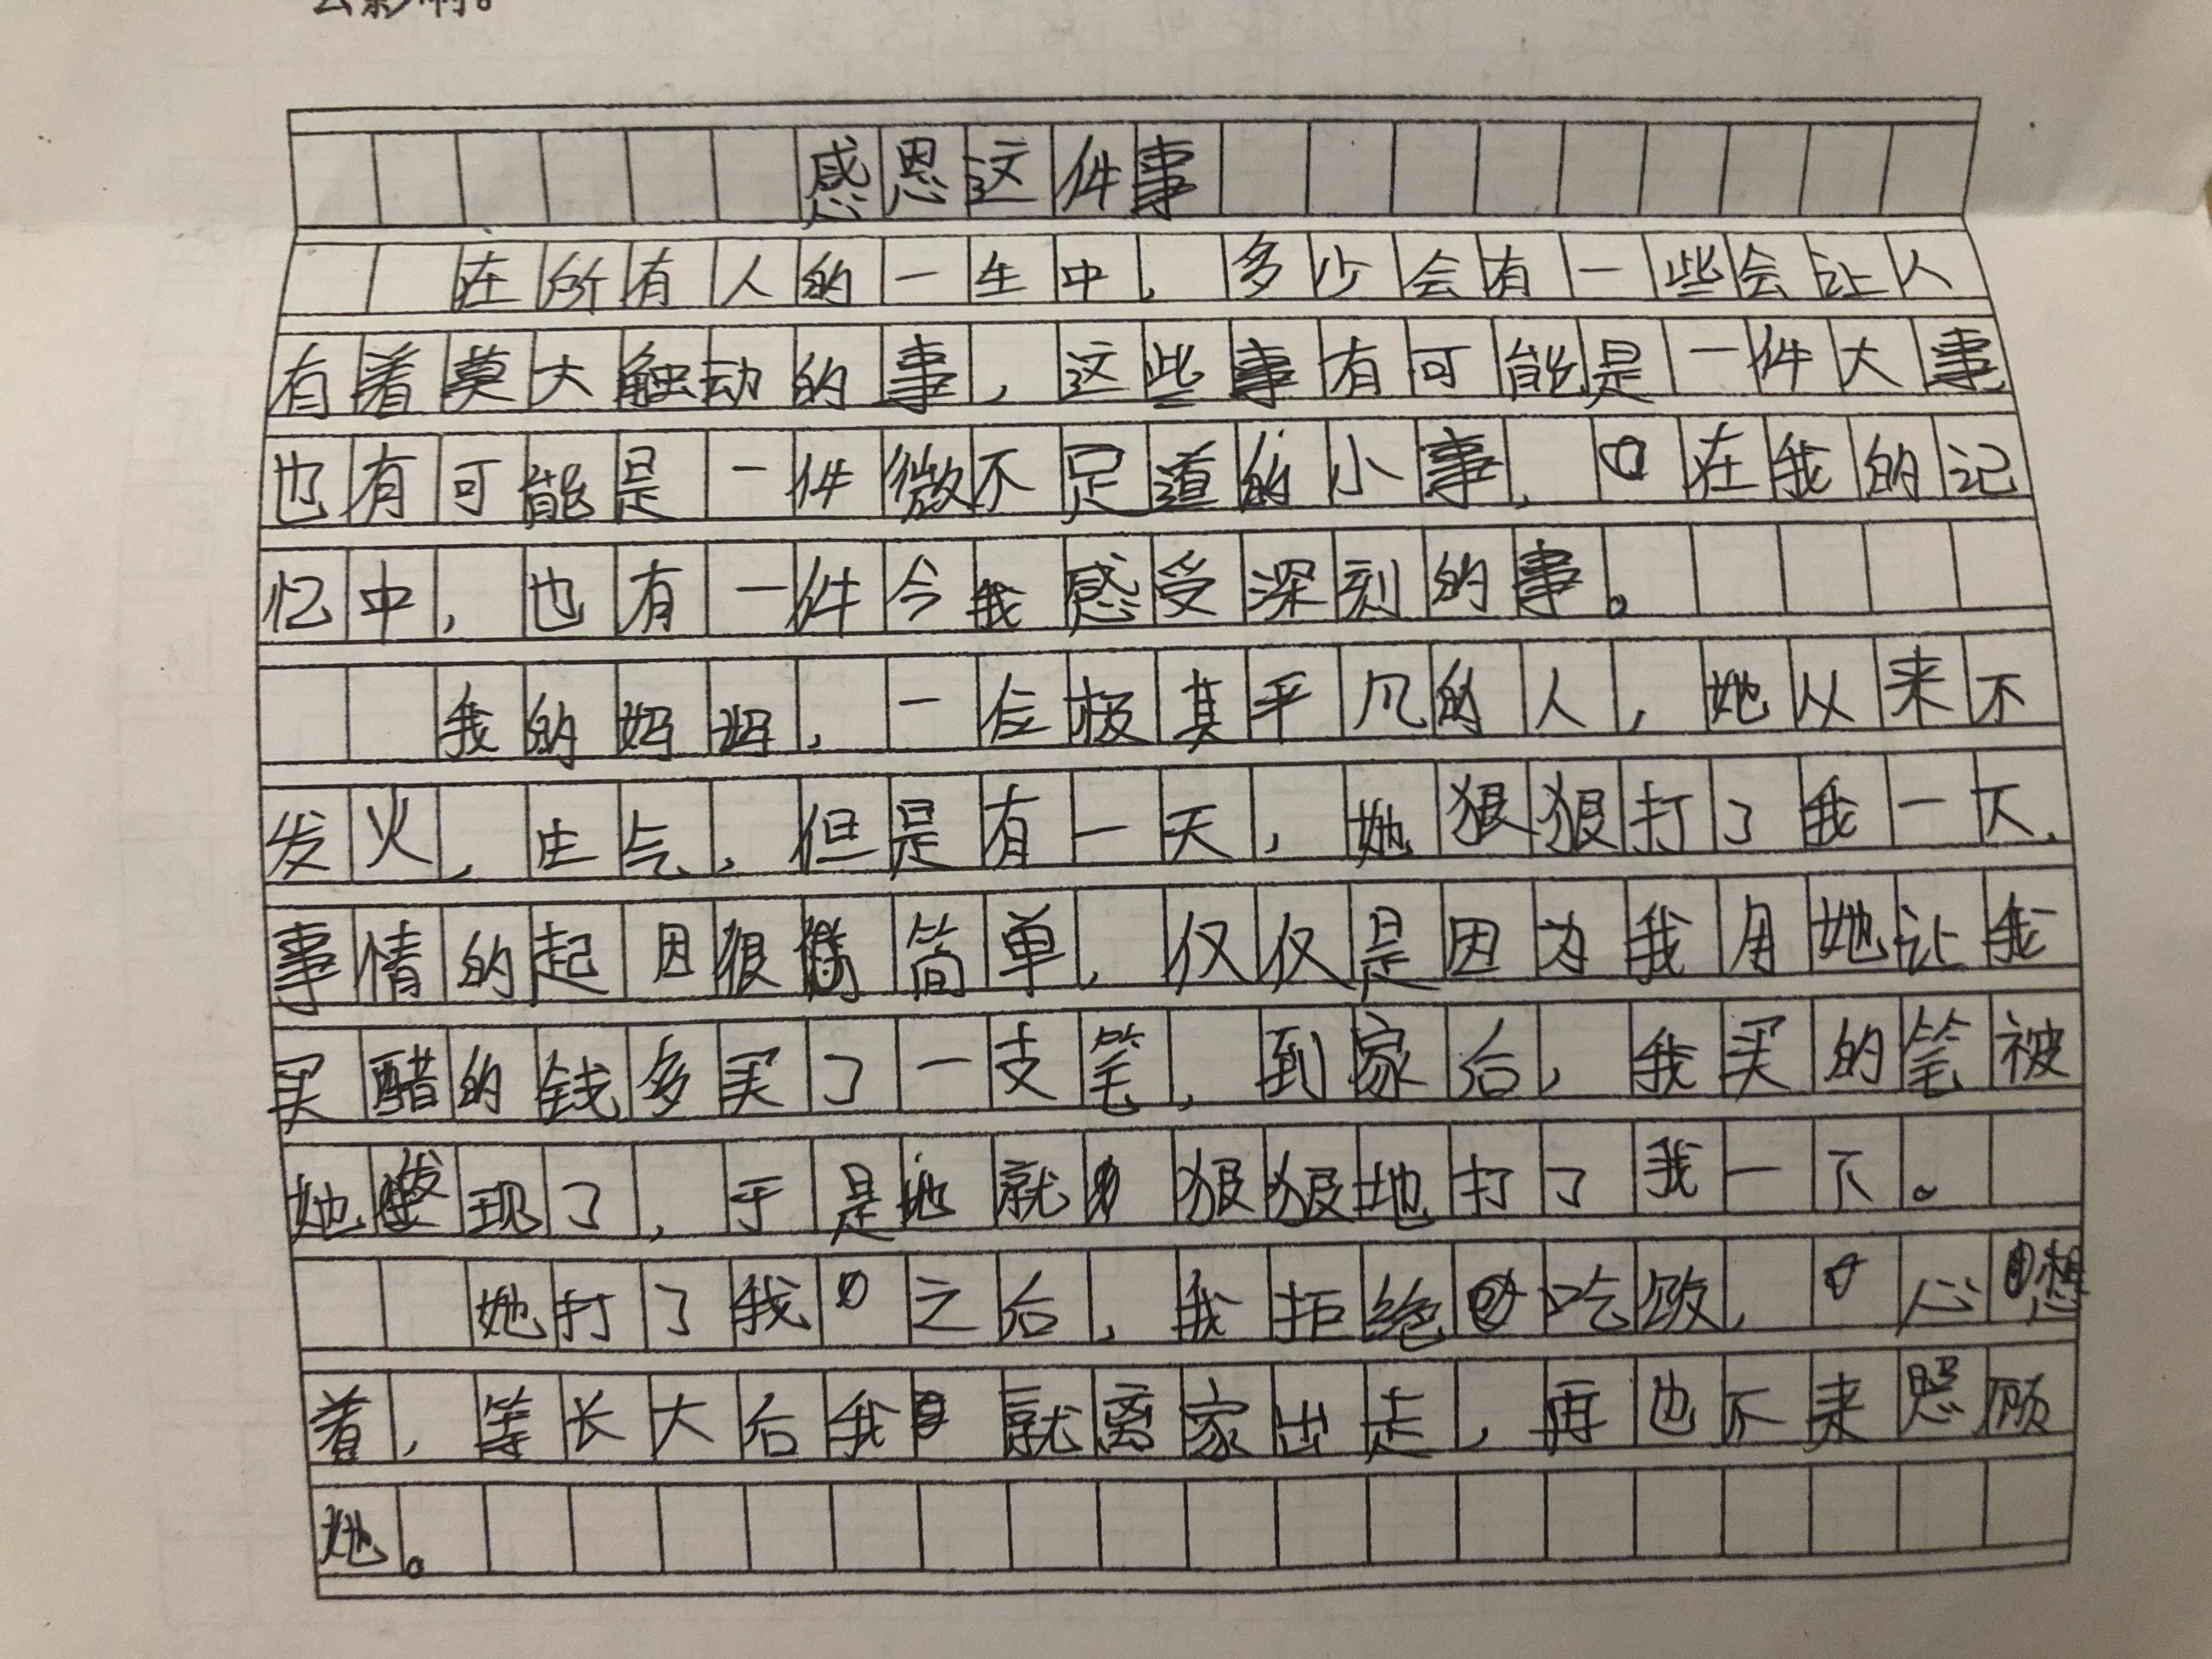 感恩这件事
在所有人的一生中，多少会有一些会让人
有着莫大触动的事，这些事有可能是一件大事，
也有可能是一件微不足道的小事，在我的记
忆中，也有一件令我感受深刻的事。
我的妈妈，一位极其平凡的人，她以来不
发火，生气，但是有一天，她狠狠打了我一下，
事情的起因很简单，仅仅是因为我用她让我
买醋的钱多买了一支笔，到家后，我买的笔被
她发现了，于是她就狠狠地打了我一下。
她打了我之后，我拒绝吃饭，心想
着，等长大后我就离家出走，再也不来照顾
她。